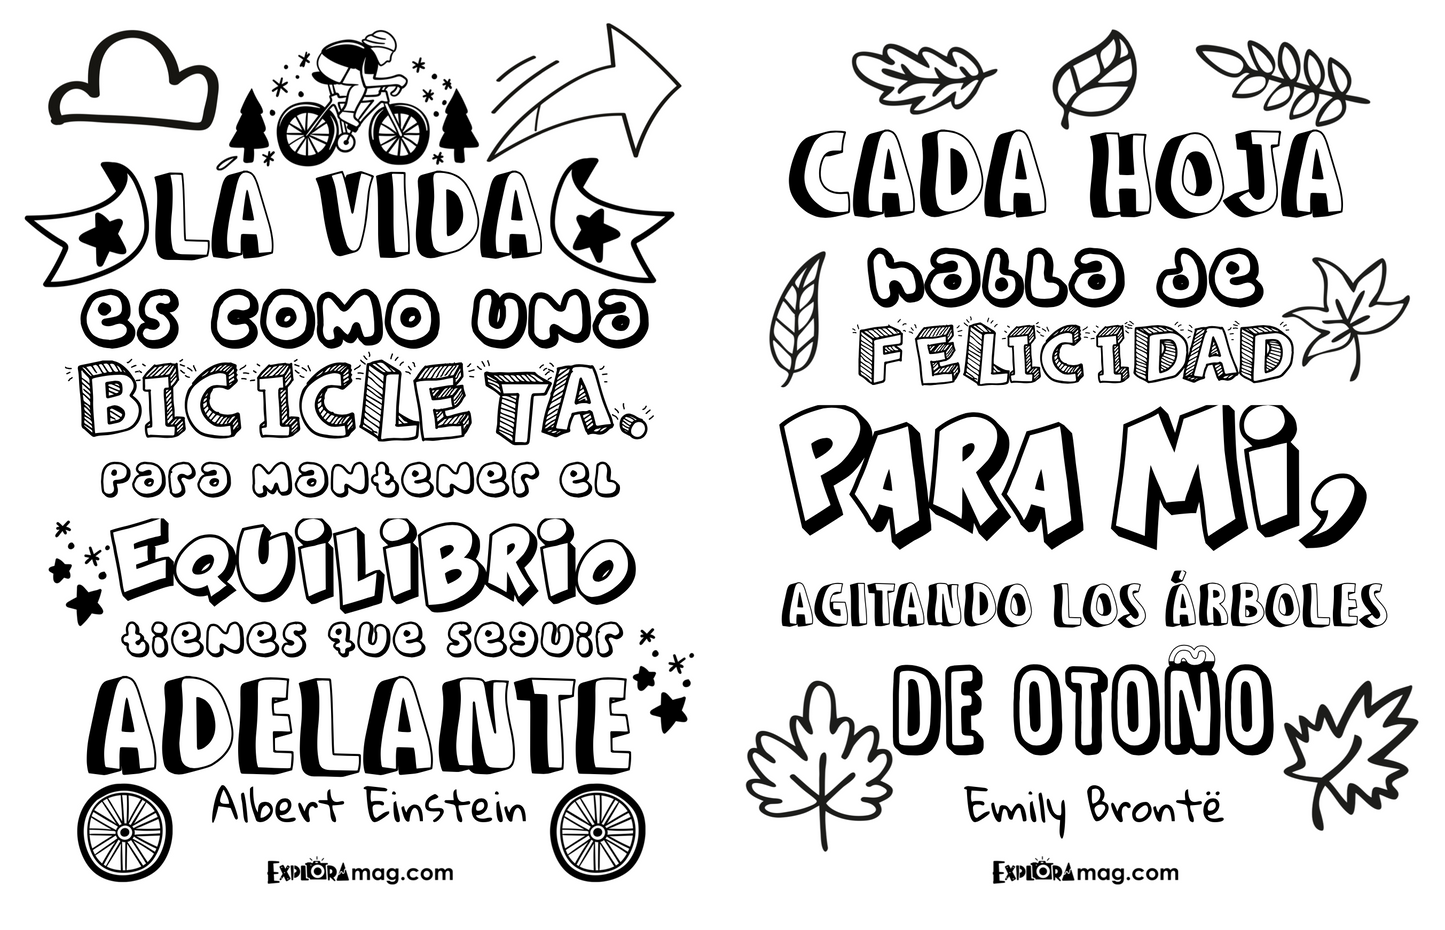 LA VIDA
es como una
BICICLETA.
para mantener el
EQUiLiBRiO
tienes que seguir
ADELANTE
Albert Einstein
EXPLORAmag.com
CADA HOJA
habla de
FELICIDAD
PARA Mi,
AGITANDO LOS ÁRBOLES
DE OTOÑO
Emily Brontë
EXPLORAmag.com